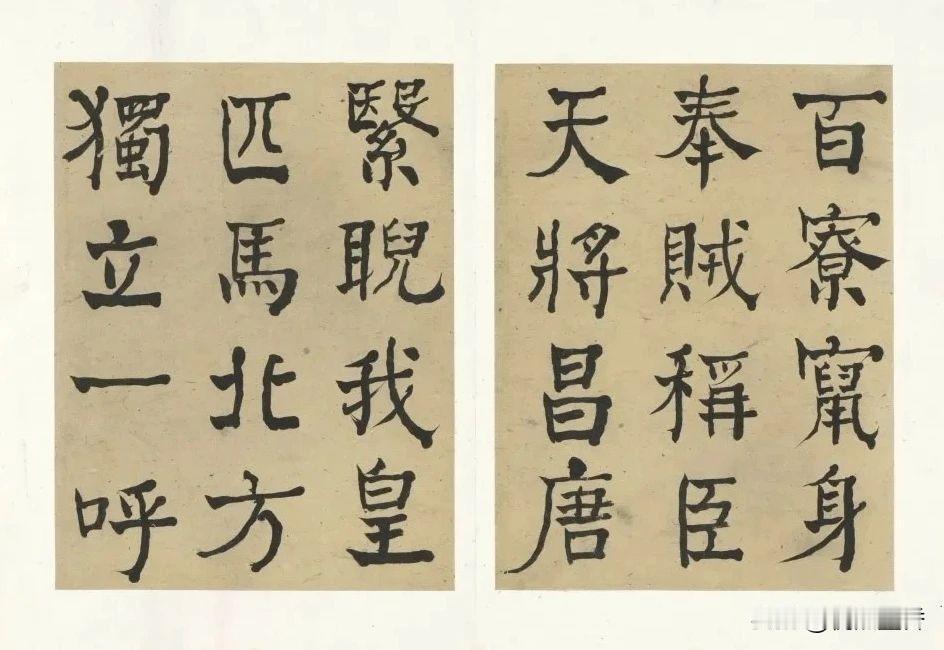 百寮竄身
奉賊稱臣
天將昌唐
繄睨我皇
匹馬北方
獨立一呼